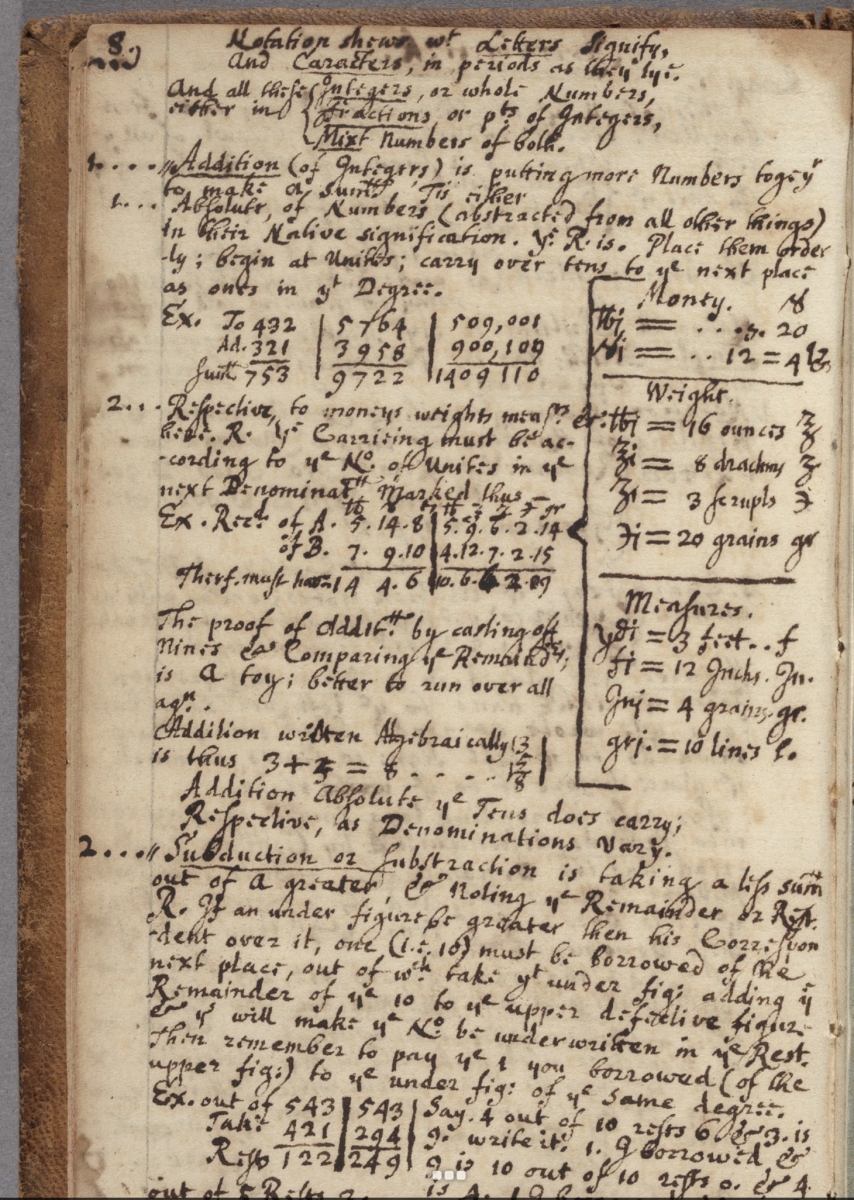 8.)
Notation shews wt Letters signify,
And Caracters, in periods as they lye.
And all these Integers, or whole Numbers,
either in Fractions, or pts of Integers,
Mixt Numbers of both.
1.... Addition (of Integers) is putting more Numbers togeyr
to make a Sum, Tis either
1... Absolute, of Numbers (abstracted from all other things)
in their Native signification. ye R. is. Place them order
-ly; begin at Unites; carry over tens to ye next place
as ones in yt Degree.
Ex. To 432 | 5764 | 509,001
Ad. 321 | 3958 | 900,109
Sum 753 | 9722 | 1409110
2... Respective, to moneys weights meas &c.
here. R. ye Carrieing must be ac-
-cording to ye No. of Unites in ye
next Denominat Marked thus
Ex. Rec. of A. 5.14.8 | 5.9.6.2.14
of B. 7. 9.10 | 4.12.7.2.15
Therf. must have 14 4. 6
The proof of Addit by casting off
Nines & Comparing ye Remaind
is a toy; better to run over all
agn.
Addition written Algebraically
is thus 3+5 = 8 . . . .
Addition Absolute ye Tens does carry;
Respective, as Denominations vary.
Money.
= . . . 20
= . . 12 = 4
Weight.
= 16 ounces
= 8 drachms
= 3 scrupls
= 20 grains gr
Measures.
ydi = 3 feet . . f
fi = 12 Inchs. In.
Inj = 4 grains. gr.
grj. = 10 lines l.
2... Subduction or Substraction is taking a less sum
out of a greater, & Noting ye Remainder or Rest.
R. If an under figure be greater then his Correspon
-dent over it, one (i.e. 10) must be borrowed of the
next place, out of wch take yt under fig: adding ye
Remainder of ye 10 to ye upper defective figure
& ys will make ye No. be underwritten in ye Rest.
Then remember to pay ye 1 you borrowed (of the
upper fig:) to ye under fig: of ye same degree.
Ex. out of 543 | 543 | Say. 4 out of 10 rests 6 & 3. is
Take 421 | 294 | 9. write it. 1. I borrowed &
Rests 122 | 249 | 9 is 10 out of 10 rests 0. & 4
out of 5 Rests